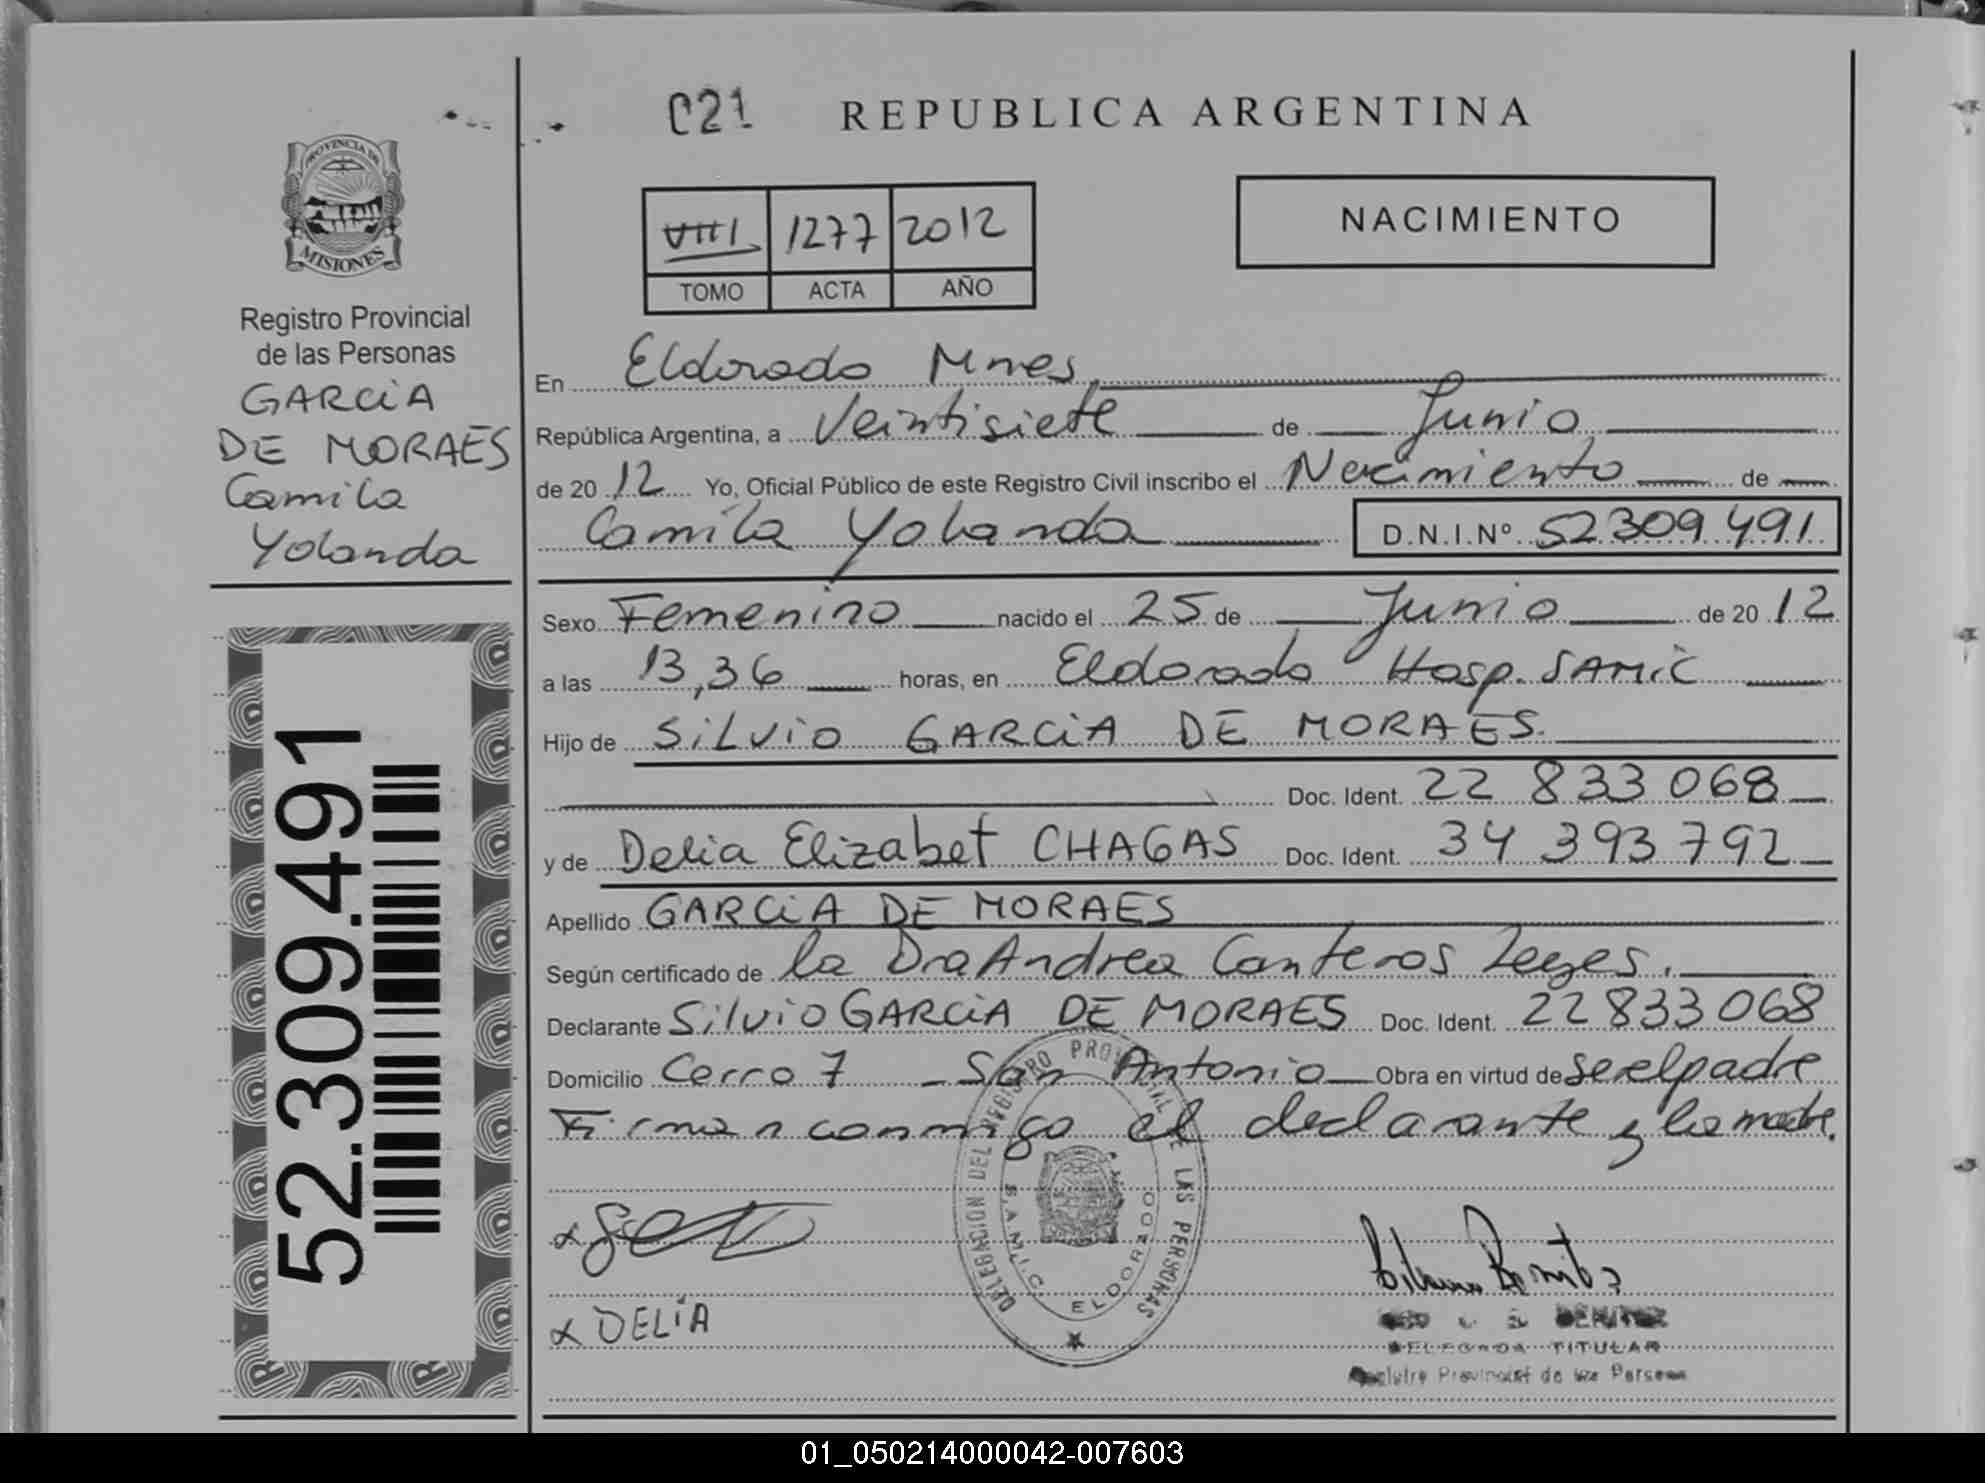 C21 REPUBLICA ARGENTINA
PROVINCIA DE
MISIONES
Registro Provincial
de las Personas
GARCiA
DE MORAES
Camila
Yolanda
52.309.491
VIII 1277 2012
TOMO ACTA AÑO
NACIMIENTO
En Eldorado Mnes
República Argentina, a Veintisiete de Junio
de 20 12 Yo, Oficial Público de este Registro Civil inscribo el Nacimiento de
Camila Yolanda D.N.I.Nº 52309491
Sexo Femenino nacido el 25 de Junio de 20 12
a las 13,36 horas, en Eldorado Hosp. SAMiC
Hijo de SiLViO GARCiA DE MORAES.
Doc. Ident. 22 833 068
y de Delia Elizabet CHAGAS Doc. Ident. 34 393 792
Apellido GARCiA DE MORAES
Según certificado de la Dra Andrea Canteros Leyes.
Declarante Silvio GARCiA DE MORAES Doc. Ident. 22833068
Domicilio Cerro 7 - San Antonio Obra en virtud de ser el padre
Firman conmigo el declarante y la madre.
DELEGACION DEL REGISTRO PROVINCIAL DE LAS PERSONAS
S.A.M.I.C. ELDORADO
x DELiA
BENITEZ
DELEGADA TITULAR
Registro Provincial de las Personas
01_050214000042-007603